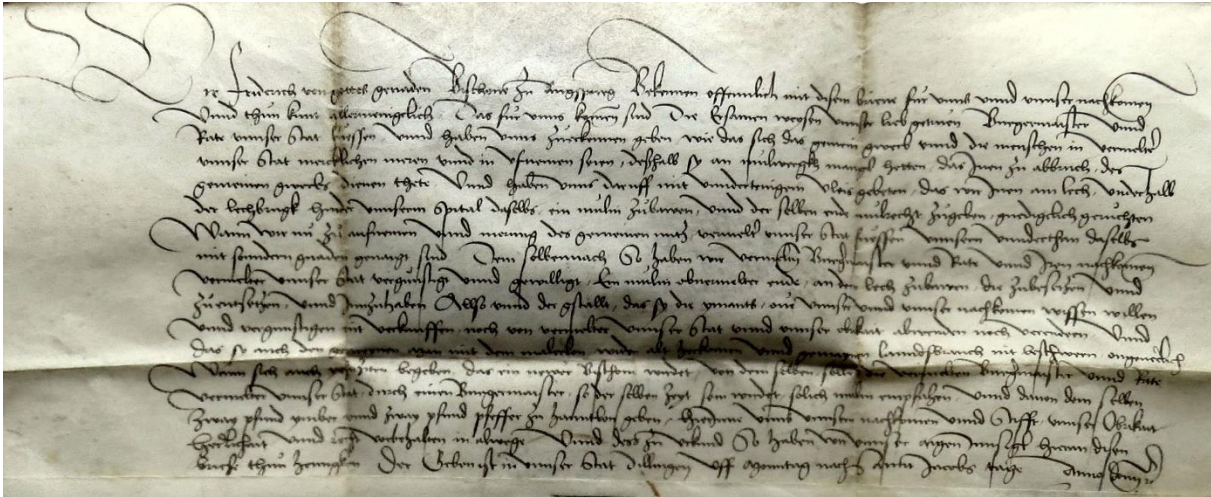 Wir Fridrich von gottes genaden Bischove zu Augspurg Bekennen offennlich mit disem brieve fur unns unnd unnser nachkomen
Unnd thun kunt allermenglich. Das fur unns komen sind Die Ersamen weysen unnser lieb getruwen Burgermaister unnd
Rate unnser Stat Fuessen unnd haben unns zuerkennen geben wie das sich das gemein gwerb unnd die menschen in vermelter
unnser Stat mercklichen meren unnd in ufnemen seien, deßhalb sy an mulwerckh mangl hetten, das Inen zu abbruch, des
gemeinen gwerbs dienen thete. Unnd haben unns daruff mit undertenigem vleis gebeten, das wir Inen am lech, underhalb
der lechbrugk hinder unnserm Spital daselbs, ein mulin zubawen, unnd der selben ende mulrecht zugeben, gnediglich geruchten
Wann wir nu zu aufnemen unnd merung des gemeinen nutz vermelter unnser Stat Fuessen unnsern underthan daselbs
mit sondern gnaden genaigt sind Dem selbennach So haben wir vermelten Burgermaister unnd Rate unnd Iren nachkomen
vermelter unnser Stat vergunstigt unnd gewilligt, Ein mulin obvermelter ende, an den lech zubawen, die zubesetzen unnd
zuentsetzen, unnd Innzuhaben Allso unnd der gstallt, das sy die niemants, one unnser unnd unnser nachkomen wissen willen
unnd vergunstigen nit verkauffen, noch von vermelter unnser Stat unnd unnser oberkait abwenden noch verennden Unnd
das sy auch den gemainen man mit dem malen, wider alt herkomen unnd gemainen Landsbrauch nit beschweren ongeverlich
Wann sich auch zuzeiten begeben, das ein newer Bischove wirdet, von dem selben sollen die vermelten Burgermaister unnd Rate
vermelter unnser Stat, durch einen Burgermaister, so der selben zeyt sein wirdet, solich mulin empfahen, unnd davon dem selben
zway pfund ymber unnd zway pfund pfeffer zu hanntlon geben, Hierinne unns unnser nachkomen unnd Stifft, unnser Oberkait
herlichait unnd recht vorbehalten in alwege Unnd des zu urkund So haben wir unnser aigen Innsigl hieran disen
brieve thun henngken Der Geben ist in unnser Stat Dillingen uff Montag nach Sanct Jacobs tage Anno